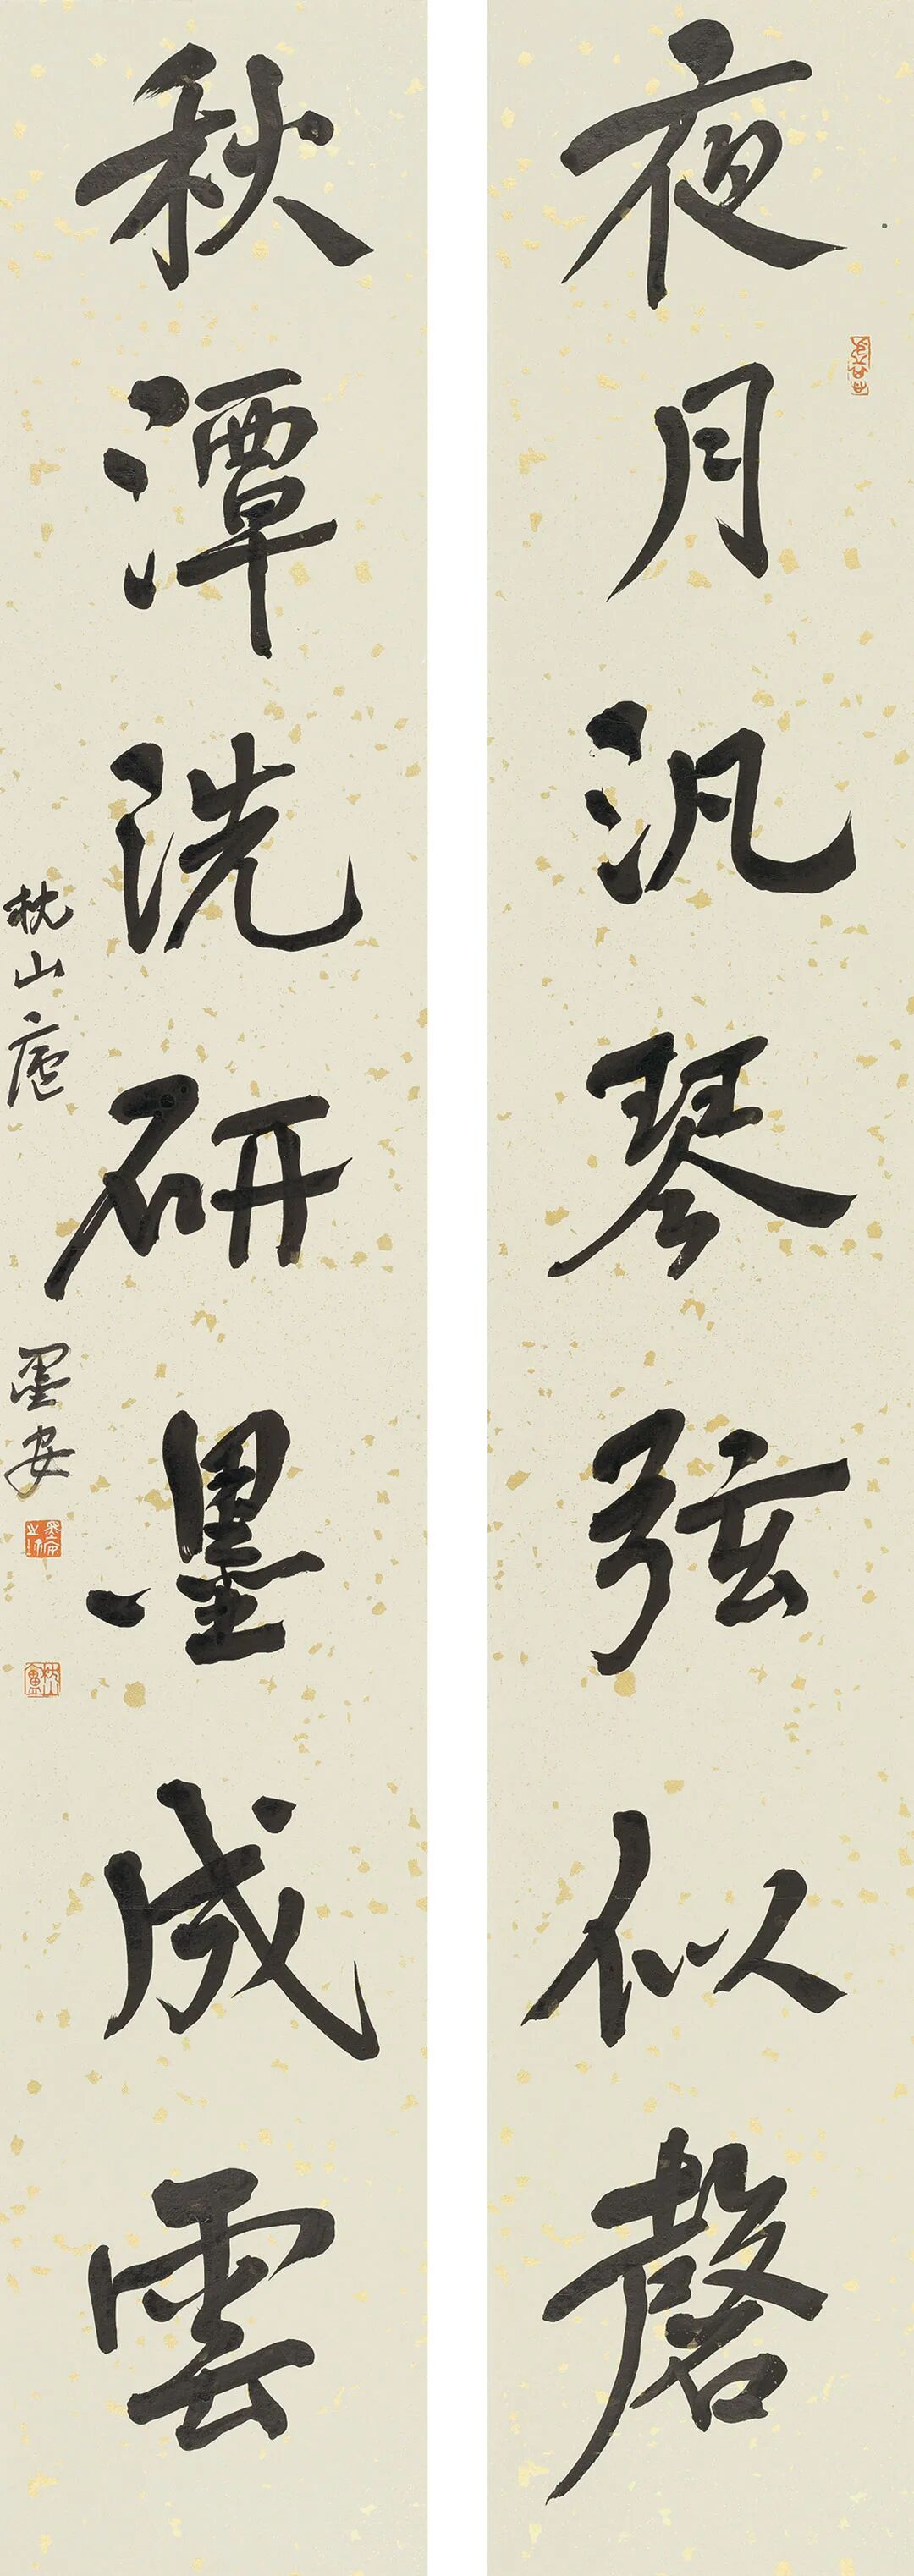 夜月汎琴弦似磬
秋潭洗研墨成雲
枕山廬 墨安